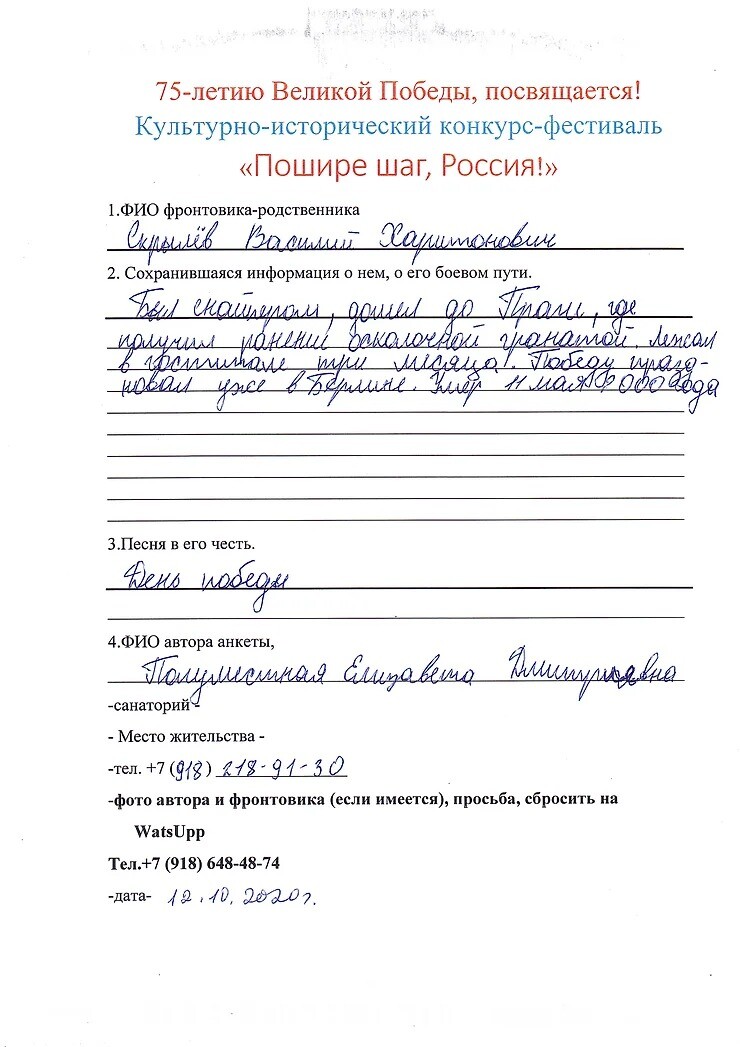 75-летию Великой Победы, посвящается!
Культурно-исторический конкурс-фестиваль
«Пошире шаг, Россия!»
1.ФИО фронтовика-родственника
Скрылёв Василий Харитонович
2. Сохранившаяся информация о нем, о его боевом пути.
Был снайпером, дошел до Праги, где
получил ранение осколочной гранатой. Лежал
в госпитале три месяца. Победу празд-
новал уже в Берлине. Умер 11 мая года
3.Песня в его честь.
День победы
4.ФИО автора анкеты,
Полуместная Елизавета Дмитриевна
-санаторий -
- Место жительства -
-тел. +7 (918) 218-91-30
-фото автора и фронтовика (если имеется), просьба, сбросить на
WatsUpp
Тел.+7 (918) 648-48-74
-дата- 12.10.2020г.